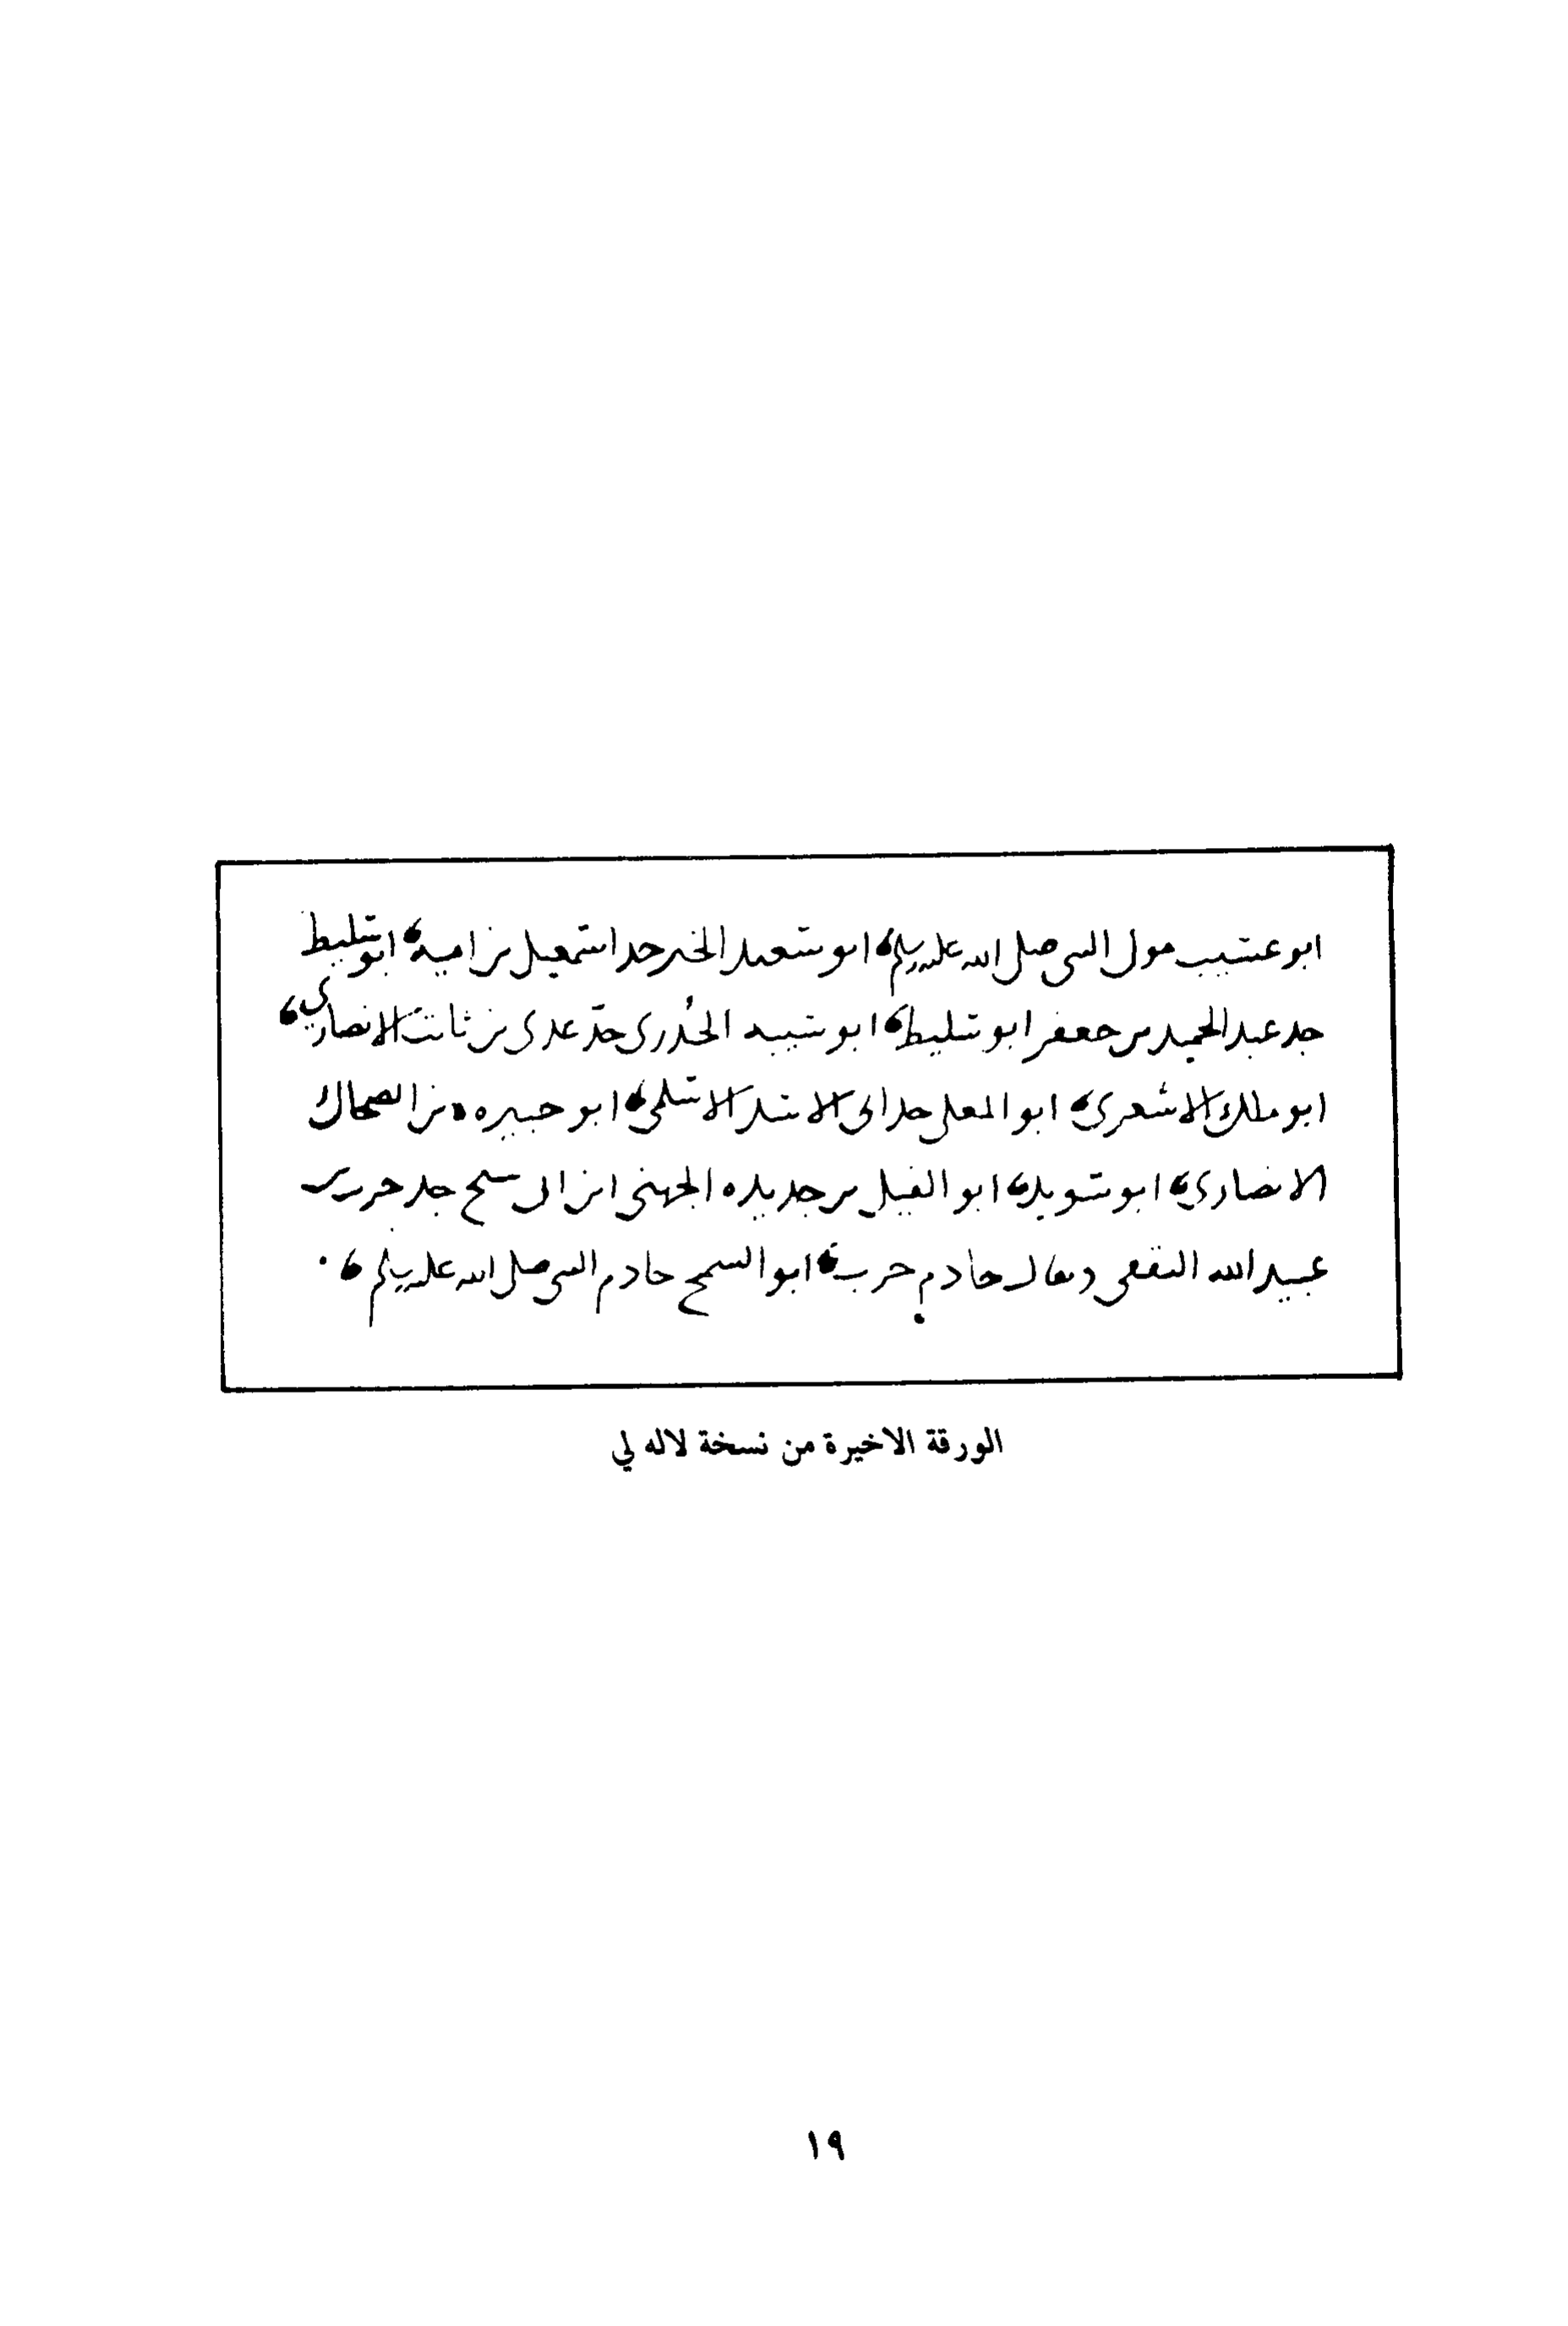 ابو عسيب مولى النبي صلى الله عليه وسلم ابو سعيد الخير جد اسمعيل بن امية ابو سليط
جد عبد الحميد بن جعفر ابو سليط ابو شيبه الخدرى جد عدى بن ثابت الانصاري
ابو ملك الاشعري ابو المعلى جد ابى الاسد الاسلمى ابو جبيره بن الضحاك
الانصاري ابو سويد ابو الفيل بن جديده الجهنى ابن ابى سح جد حرب بن
عبيد الله الثقفى ويقال خادم حرب ابو السمح خادم النبي صلى الله عليه وسلم
الورقة الاخيرة من نسخة لاله لي
١٩